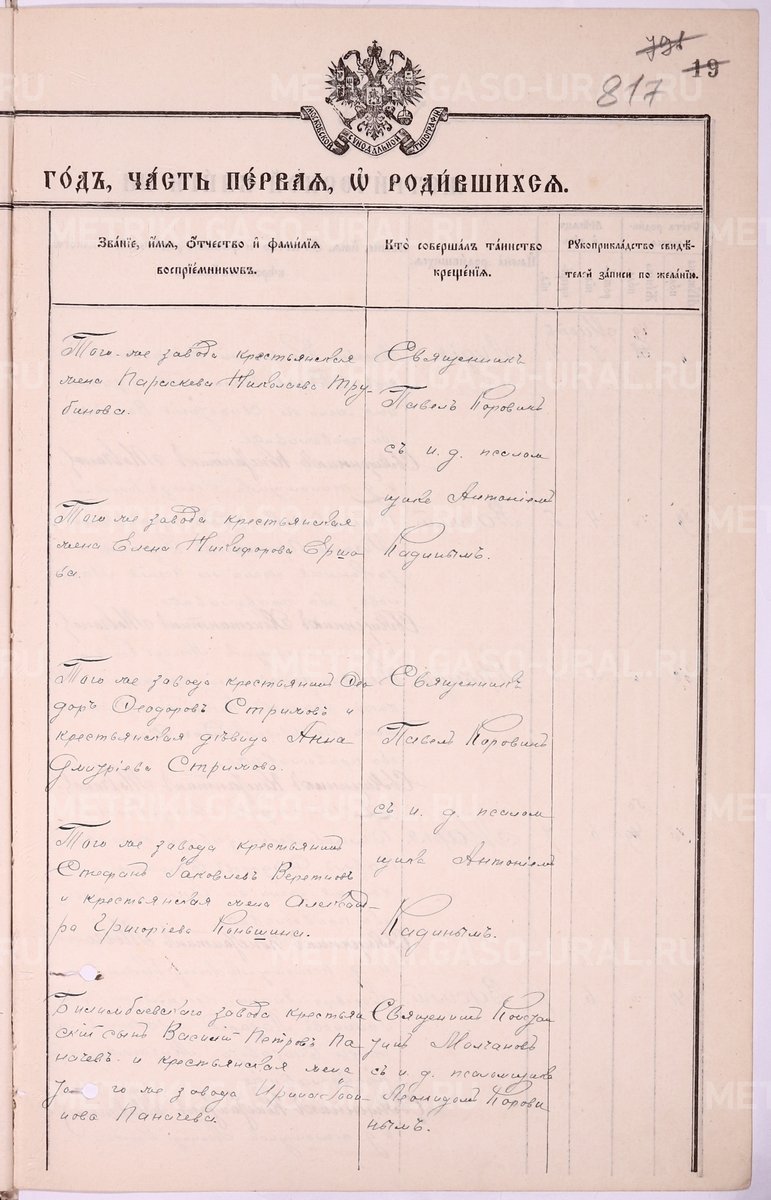 19
817
МОСКОВСКОЙ СѴНОДАЛЬНОЙ ТИПОГРАФІИ
ГОДЪ, ЧАСТЬ ПЕРВАЯ, Ѡ РОДИВШИХСЯ.
Званіе, имя, отчество и фамилія
воспріемниковъ.
Кто совершалъ таинство
крещенія.
Рукоприкладство свидѣ-
телей записи по желанію.
Того-же завода крестьянская
жена Параскева Николаева Тру-
бинова.
Священникъ
Павелъ Коровинъ
съ и. д. псалом
щика Антоніемъ
Кадинымъ.
Того же завода крестьянская
жена Елена Никифорова Ершо
ва.
Того же завода крестьянинъ Ѳео
доръ Ѳеодоровъ Стрижовъ и
крестьянская дѣвица Анна
Дмитріева Стрижова.
Священникъ
Павелъ Коровинъ
съ и. д. псалом
щика Антоніемъ
Кадинымъ.
Того же завода крестьянинъ
Стефанъ Іаковлевъ
и крестьянская жена Александ-
ра Григоріева Коньшина.
Билимбаевскаго завода крестьян
скій сынъ Василій Петровъ Па
начевъ и крестьянская жена
го же завода Ирина
нова Паначева.
Священникъ Констан
тинъ Молчановъ
съ и. д. псаломщика
Леонидомъ Корови
нымъ.
METRIKI.GASO-URAL.RU